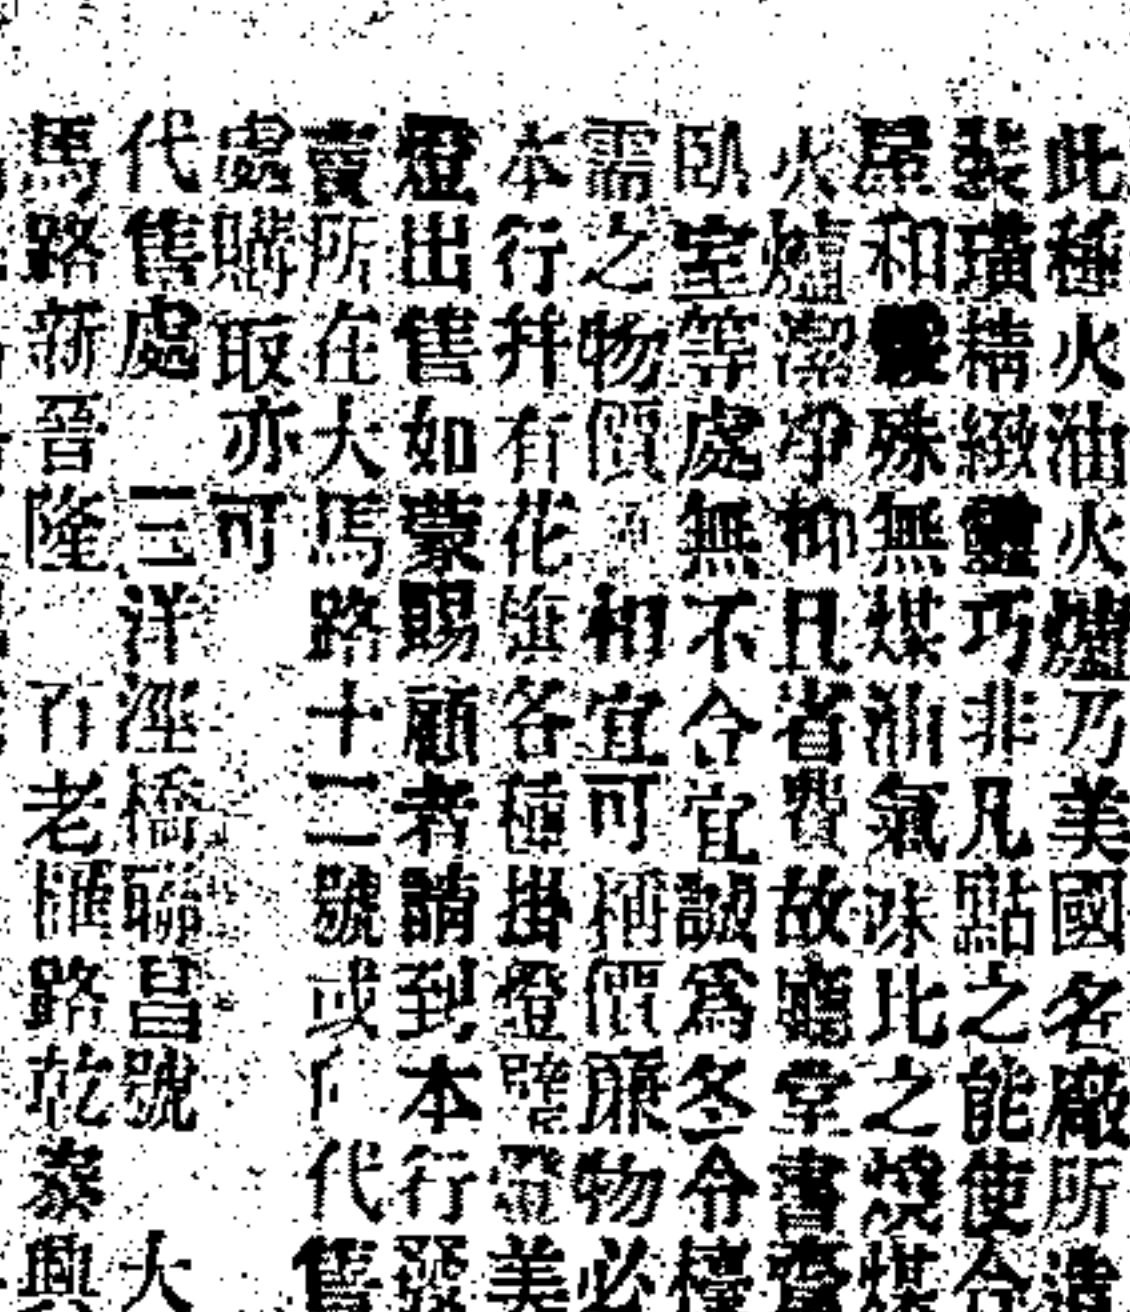 此種火油火爐乃美國名廠所造
裝璜精緻靈巧非凡點之能使合
屋和暖殊無煤油氣味比之燒煤
火爐潔淨抑且省費故廳堂書齋
臥室等處無不合宜誠為冬令檯
需之物價 和宜可稱價廉物必
本行幷有花旗各種掛燈壁燈美
燈出售如蒙賜顧者請到本行發
賣所在大馬路十二號或 代售
處購取亦可
代售處 三洋涇橋聯昌號 大
馬路新晉隆 老匯路乾泰興